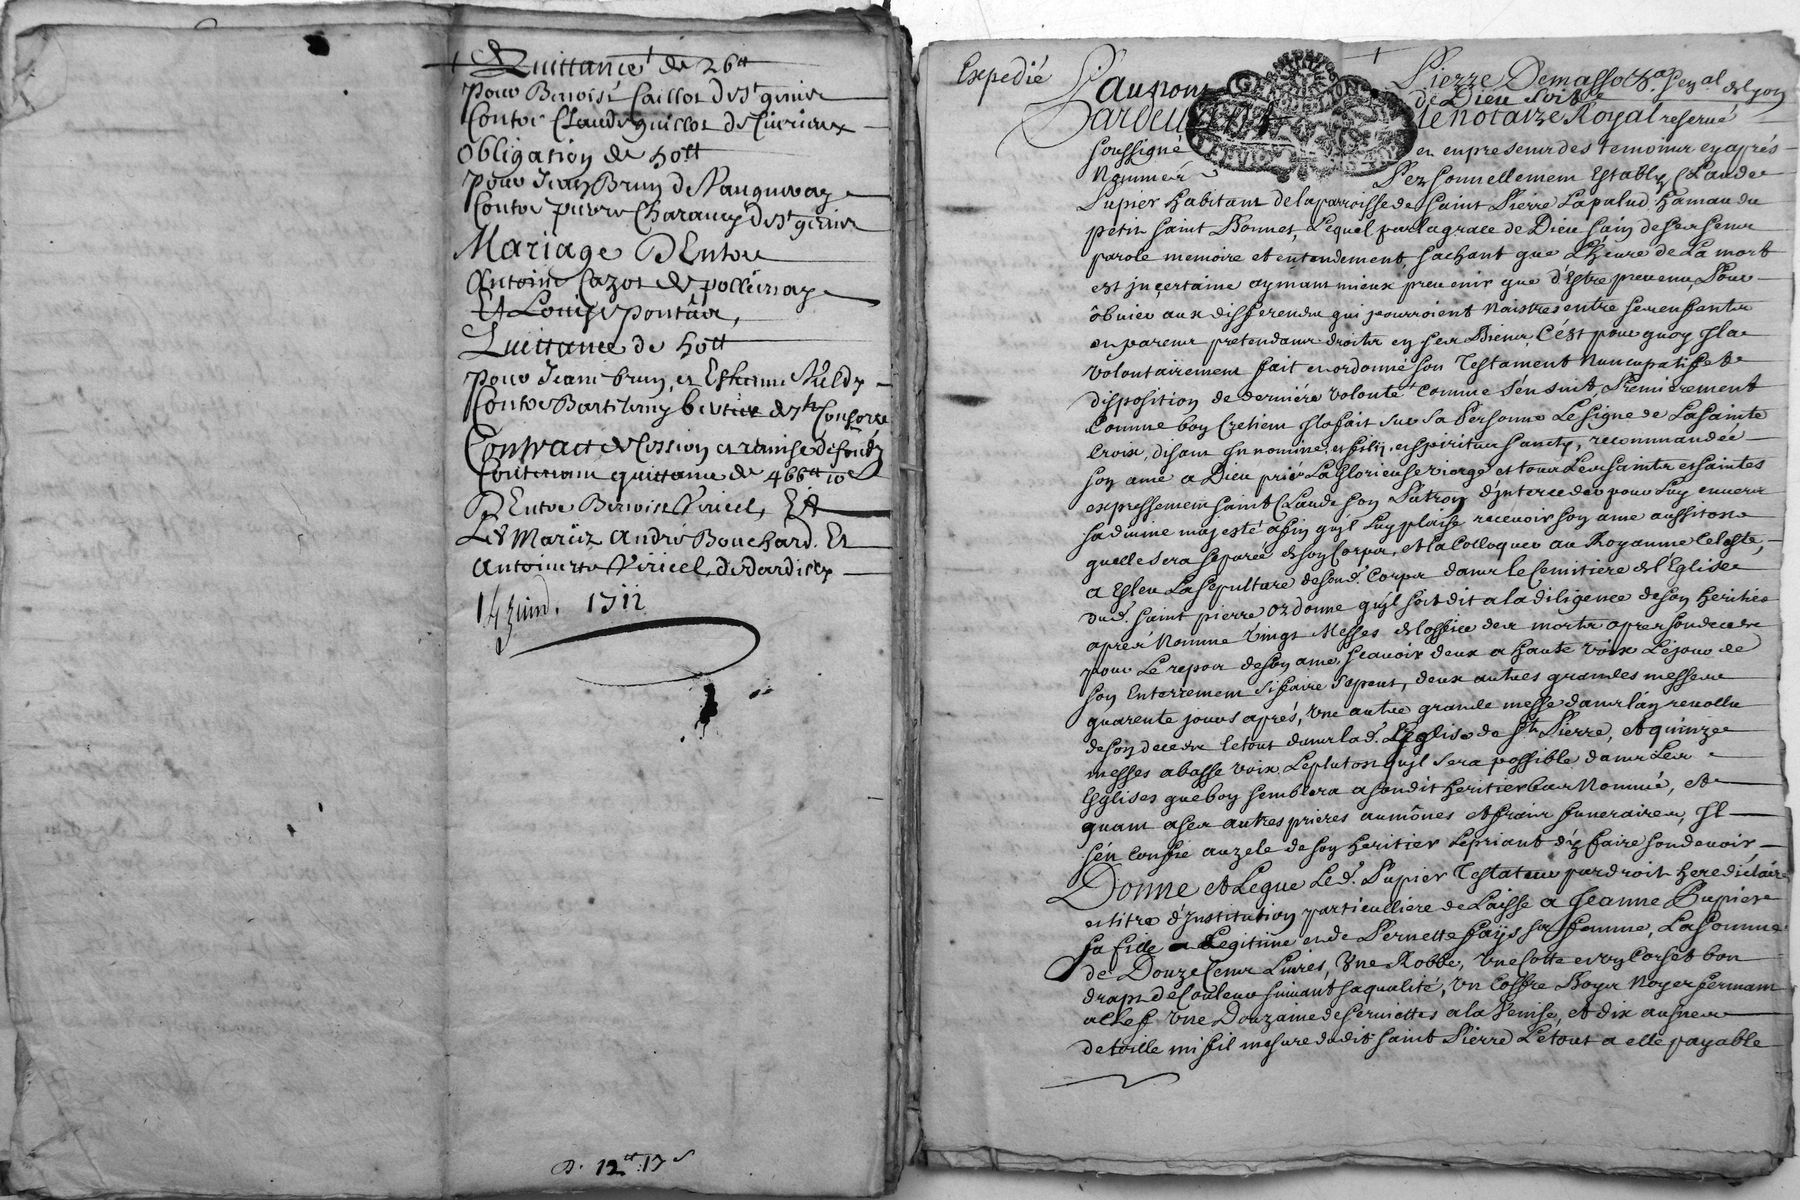 Quittance de 26tt
pour Benoist Caillot de St genier
Contre Claude guillot de
Obligation de
pour Jean Brun de
Contre pierre de St genier
Mariage D'Entre
Antoine Cazot de pollionay
Et Louise
Quittance de
pour Jean brun, et Estienne
Contre Bartilemy et Consors
Contract de Cession et remise de fonds
Contenant quittance de 466tt 10s
D'Entre Benoist Viricel, Et
Les Mariez André Bouchard Et
Antoinette Viricel de
juin 1712
12tt 17s
Expedié
Pierre Demasso
Au nom de Dieu soit
Pardevant le notaire Royal reservé
soussigné et en presence des temoins cy après
Nommés Personnellement Estably Claude
Pupier Habitant de la parroisse de Saint Pierre Lapalud hameau du
petit Saint Bonnet, Lequel par la grace de Dieu sain de ses sens
parole memoire et entendement, sachant que L'heure de La mort
est jncertaine aymant mieux prevenir que d'Estre prevenu Pour
obvier aux differends qui pourroient Naistre entre ses enfants
et parens pretendans droits en ses Biens, C'est pourquoy Jl a
volontairement fait et ordonné son Testament Nuncupatif et
disposition de derniére volonté Comme s'en suit, Premiérement
Comme bon Cretien Jl a fait sur sa Personne Le signe de La sainte
Croix, disant Jn nomine et filij et spiritus sancty, recommandée
son ame a Dieu prié La Glorieuse vierge et tous Les saints et saintes
expressement saint Claude son Patron d'interceder pour Luy envers
sa divine majesté afin qu'il Luy plaise recevoir son ame aussitost
quelle sera separée de son Corps, et La Colloquer au Royaume Celeste,
a Esleu La sepulture de sond. Corps dans le Cemitiére de L'Eglise
dud. saint pierre ordonne qu'jl soit dit a la diligence de son heritier
aprés Nommé vingt Messes de L'office des morts apres son deceds
pour Le repos de son ame, sçavoir deux a haute voix Le jour de
son Enterrement si faire se peut, deux autres grandes messes
quarente jours aprés, Une autre grande messe dans l'an revollu
de son deceds le tout dans lad. Eglise de St Pierre, et quinze
messes a basse voix Le plutost qu'jl sera possible dans Les
Eglises que bon semblera a sondit heritier bas Nommé, et
quant a ses autres prieres aumônes et frais funeraires, Jl
s'en Confie au zele de son heritier Le priant d'y faire son devoir
Donne et Legue Led. Pupier Testateur par droit hereditaire
et titre d'Jnstitution particulliere de Laisse a Jeanne Pupier
sa fille Legitime et de Pernette fays sa femme, La somme
de Douze Cent Livres, Une Robbe, une Cotte et un Corset bon
drapt de Couleur suivant sa qualité, un Coffre Boys Noyer fermant
a Clef Une Douzaine de serviettes a la Venise, et dix aunes
de toille mi fil mesure dudit saint Pierre Le tout a elle payable